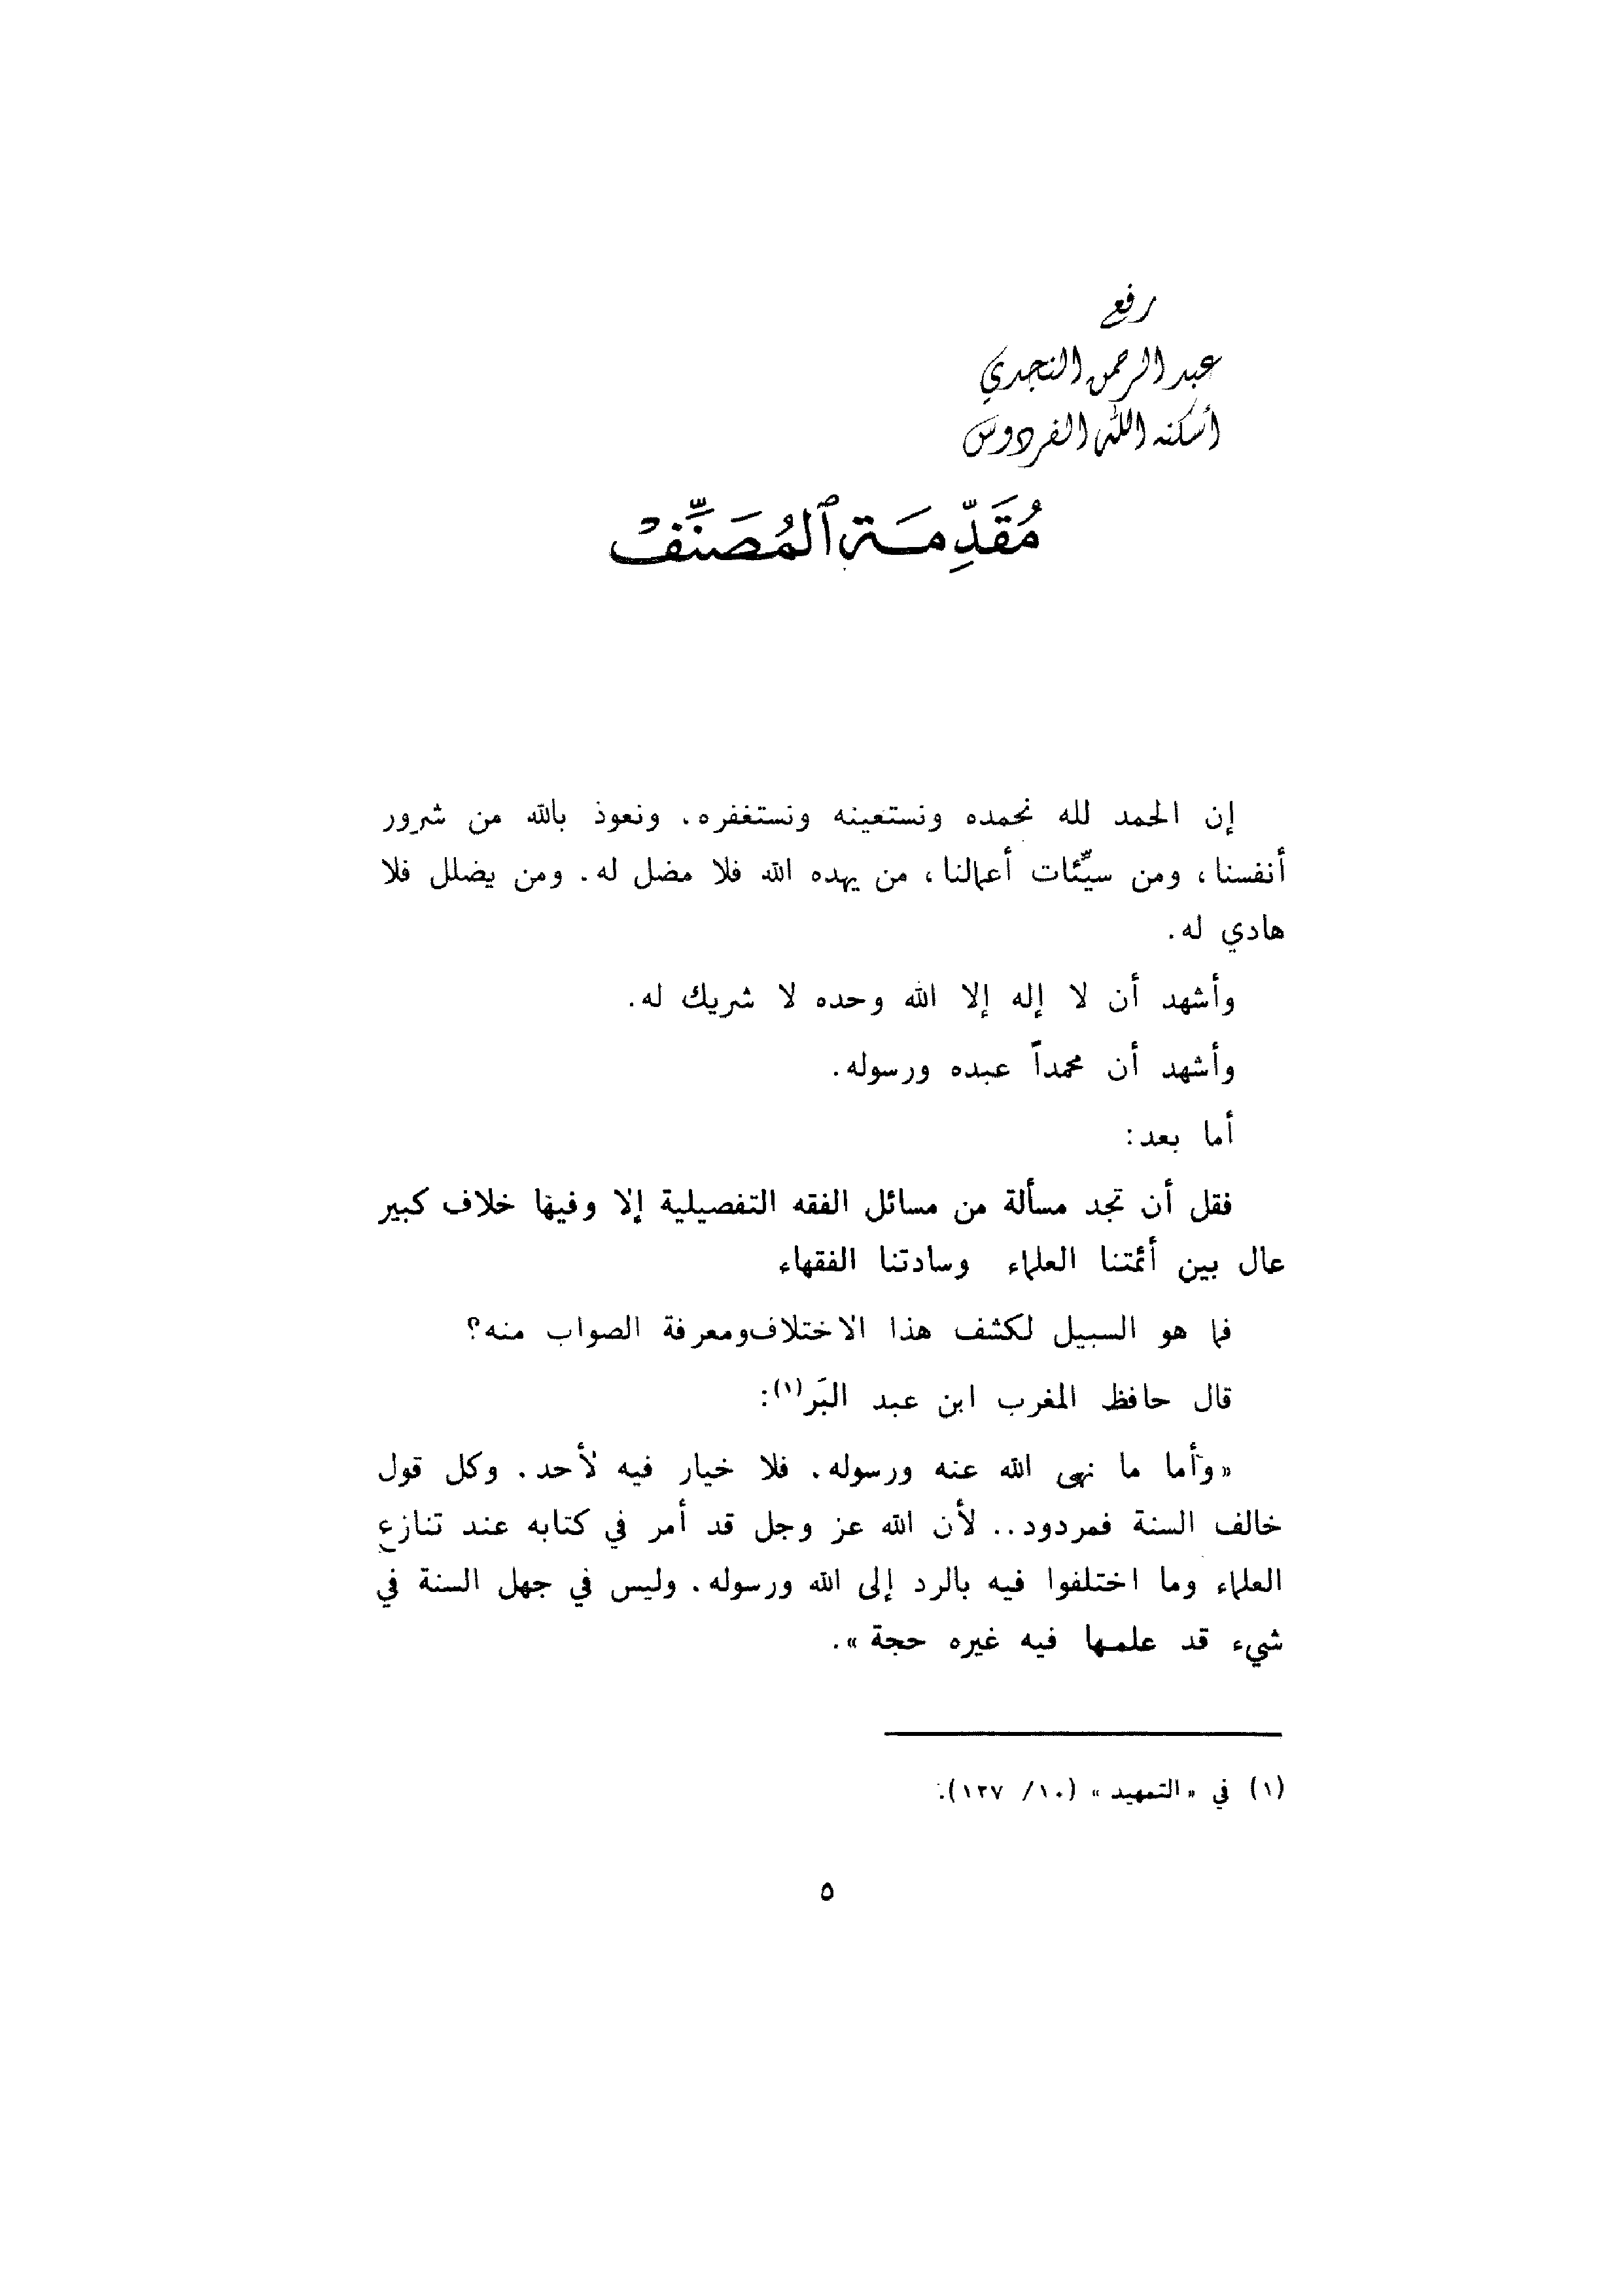 رفع
عبد الرحمن النجدي
أسكنه الله الفردوس
مُقَدِّمَة ٱلمُصَنِّف
إن الحمد لله نحمده ونستعينه ونستغفره. ونعوذ بالله من شرور
أنفسنا، ومن سيِّئات أعمالنا، من يهده الله فلا مضل له. ومن يضلل فلا
هادي له.
وأشهد أن لا إله إلا الله وحده لا شريك له.
وأشهد أن محمداً عبده ورسوله.
أما بعد:
فقل أن تجد مسألة من مسائل الفقه التفصيلية إلا وفيها خلاف كبير
عال بين أئمتنا العلماء وسادتنا الفقهاء
فما هو السبيل لكشف هذا الاختلاف ومعرفة الصواب منه؟
قال حافظ المغرب ابن عبد البَر(١):
«وأما ما نهى الله عنه ورسوله. فلا خيار فيه لأحد. وكل قول
خالف السنة فمردود.. لأن الله عز وجل قد أمر في كتابه عند تنازع
العلماء وما اختلفوا فيه بالرد إلى الله ورسوله. وليس في جهل السنة في
شيء قد علمها فيه غيره حجة».
(١) في «التمهيد» (١٠/ ١٢٧).
٥